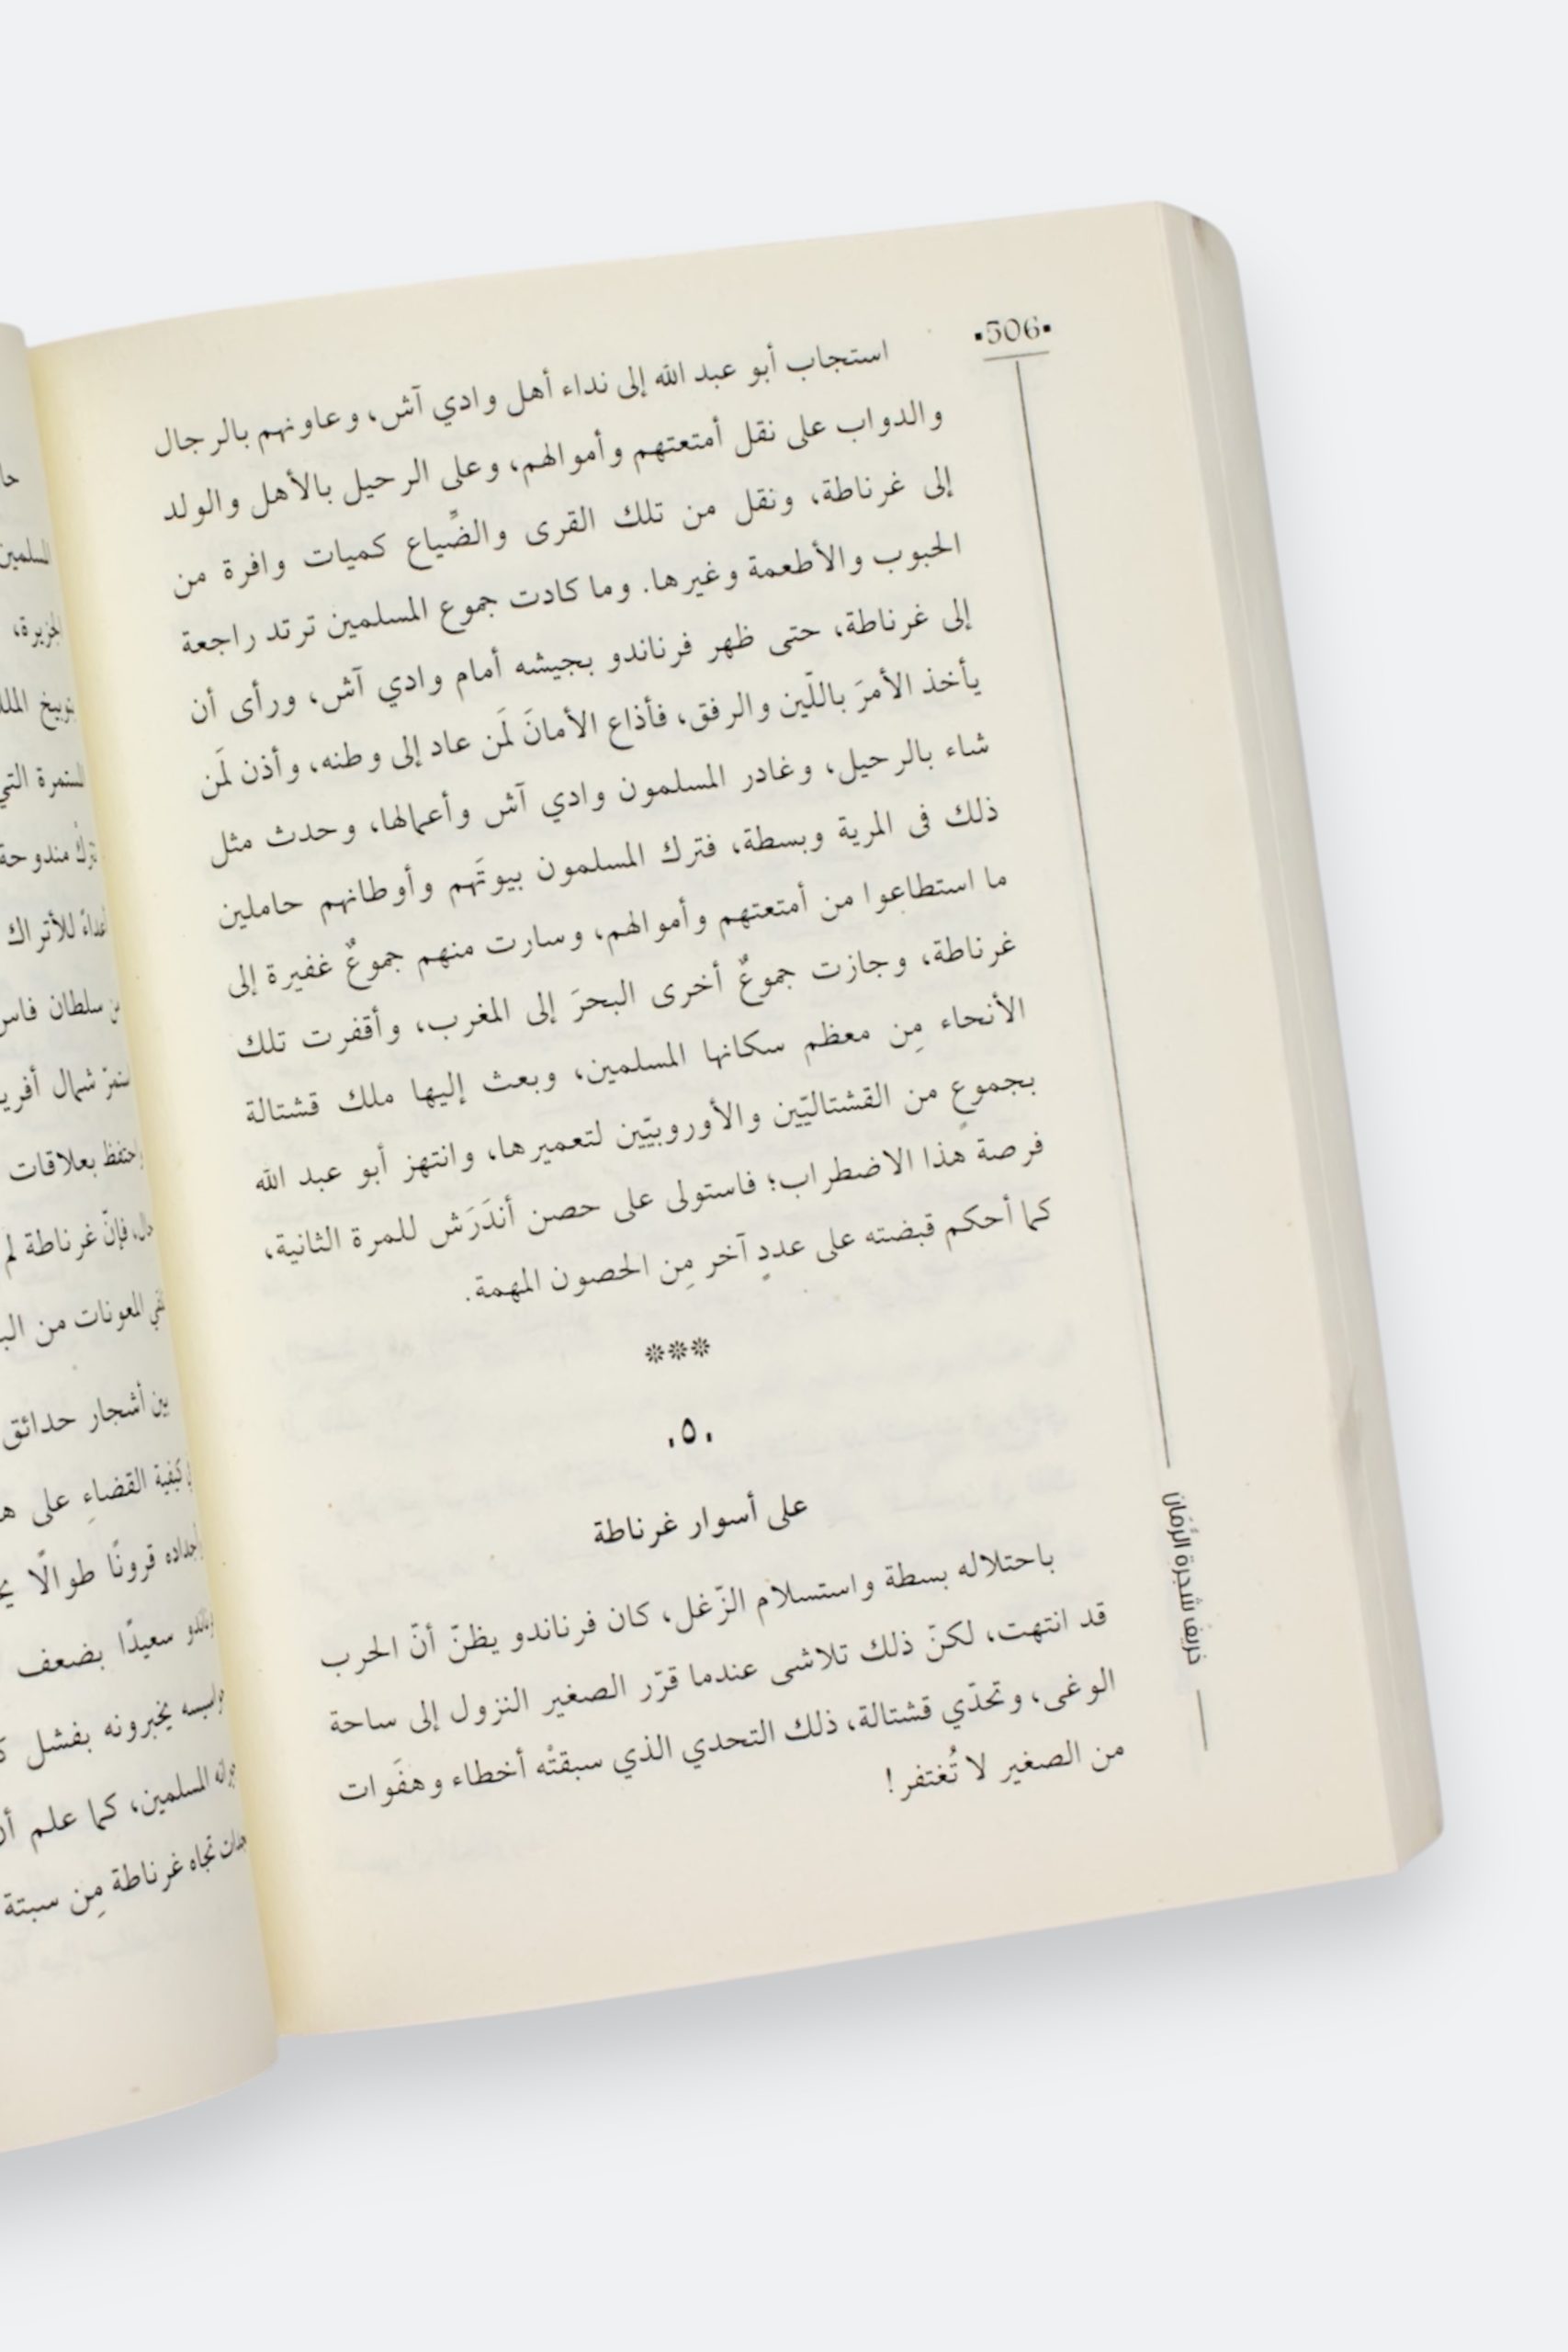 •506•
استجاب أبو عبد الله إلى نداء أهل وادي آش، وعاونهم بالرجال
والدواب على نقل أمتعتهم وأموالهم، وعلى الرحيل بالأهل والولد
إلى غرناطة، ونقل من تلك القرى والضِّياع كميات وافرة من
الحبوب والأطعمة وغيرها. وما كادت جموع المسلمين ترتد راجعة
إلى غرناطة، حتى ظهر فرناندو بجيشه أمام وادي آش، ورأى أن
يأخذ الأمرَ باللّين والرفق، فأذاع الأمانَ لمَن عاد إلى وطنه، وأذن لمَن
شاء بالرحيل، وغادر المسلمون وادي آش وأعمالها، وحدث مثل
ذلك فى المرية وبسطة، فترك المسلمون بيوتَهم وأوطانهم حاملين
ما استطاعوا من أمتعتهم وأموالهم، وسارت منهم جموعٌ غفيرة إلى
غرناطة، وجازت جموعٌ أخرى البحرَ إلى المغرب، وأقفرت تلك
الأنحاء مِن معظم سكانها المسلمين، وبعث إليها ملك قشتالة
بجموعٍ من القشتاليّين والأوروبيّين لتعميرها، وانتهز أبو عبد الله
فرصة هذا الاضطراب؛ فاستولى على حصن أندَرَش للمرة الثانية،
كما أحكم قبضته على عددٍ آخر مِن الحصون المهمة.
***
.٥.
على أسوار غرناطة
باحتلاله بسطة واستسلام الزّغل، كان فرناندو يظنّ أنّ الحرب
قد انتهت، لكنّ ذلك تلاشى عندما قرّر الصغير النزول إلى ساحة
الوغى، وتحدّي قشتالة، ذلك التحدي الذي سبقتْه أخطاء وهفَوات
من الصغير لا تُغتفر!
خريف شجرة الرُّمَّان
المسلمين
الجزيرة،
للأتراك
سلطان فاس
شمال أفري
بعلاقات
فإنّ غرناطة لم
المعونات من
بين أشجار حدائق
كيفية القضاءِ على
قرونًا طوالًا
سعيدًا بضعف
يخبرونه بفشل
المسلمين، كما علم
تجاه غرناطة مِن سبتة